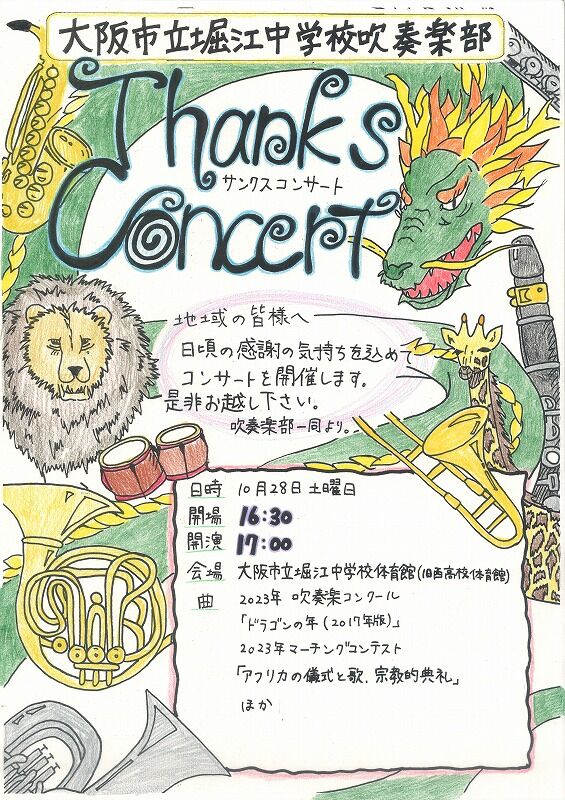 大阪市立堀江中学校吹奏楽部
Thanks
サンクスコンサート
Concert
地域の皆様へ
日頃の感謝の気持ちを込めて
コンサートを開催します。
是非お越し下さい。
吹奏楽部一同より。
日時 10月28日 土曜日
開場 16:30
開演 17:00
会場 大阪市立堀江中学校体育館(旧西高校体育館)
曲 2023年 吹奏楽コンクール
「ドラゴンの年(2017年版)」
2023年マーチングコンテスト
「アフリカの儀式と歌、宗教的典礼」
ほか